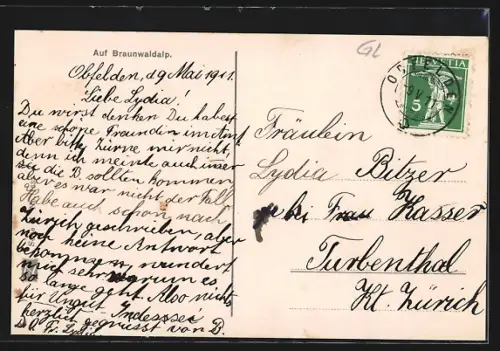 Auf Braunwaldalp.
GL
HELVETIA
5
Obfelden, d 9 Mai 1911.
Liebe Lydia!
Du wirst denken Du habest
eine schöne Freundin im Amt
Aber bitte zürne mir nicht,
denn ich meinte auch immer
die B. sollten kommen
aber es war nicht der Fall
Habe auch schon nach
Zürich geschrieben, aber
noch keine Antwort
bekommen, wundert
mich sehr warum es
so lange geht. Also nichts
für Ungut. Indessen
herzlich gegrüsst von B.
Fräulein
Lydia Bitzer
bei Frau Kasser
Turbenthal
Kt. Zürich